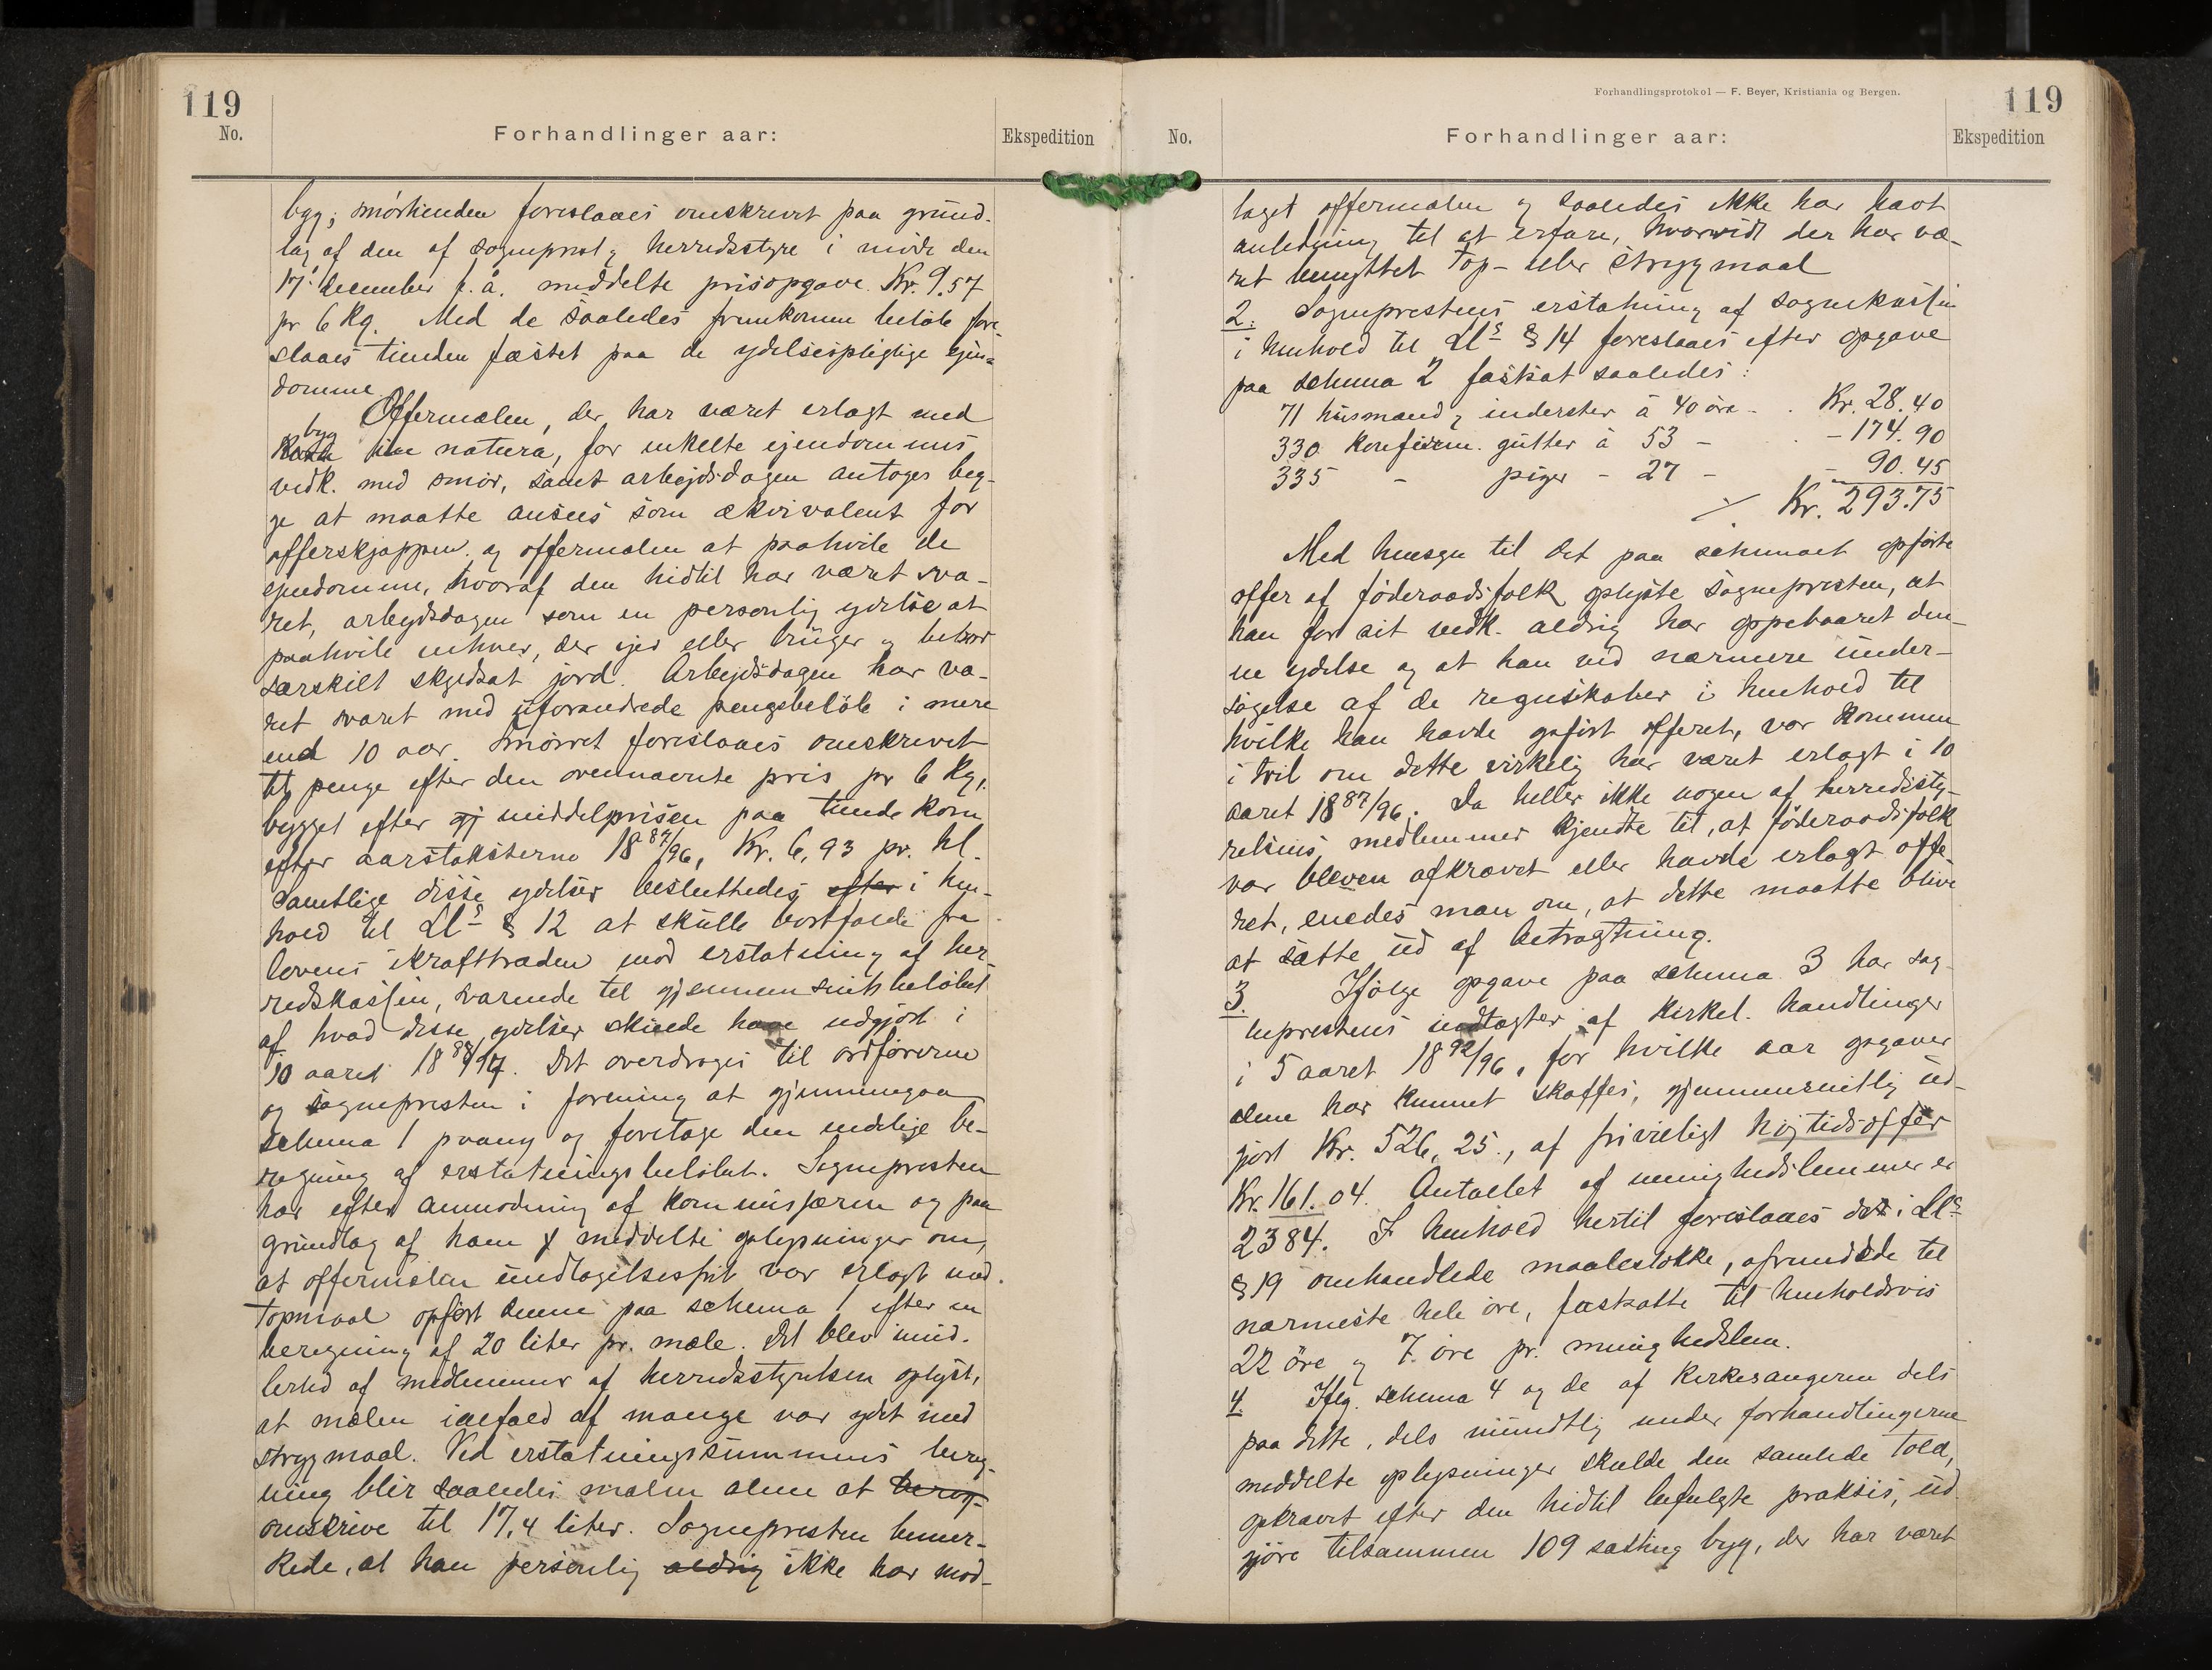 119
No.
Forhandlinger aar:
Ekspedition
byg; smörtienden foreslaaes omskrevet paa grund-
lag af den af sogneprest og herredsstyre i möde den
17. december f. å. meddelte prisopgave Kr. 9.57
pr 6 Kg. Med de saaledes fremkomne belöb fore-
slaaes tienden fæstet paa de ydelsespligtige ejen-
domme
Offermælen, der har været erlagt med
byg
in natura, for enkelte ejendommes
vedk. med smör, samt arbejdsdagen antoges beg-
ge at maatte ansees som ækvivalent for
offerskjæppen og offermælen at paahvile de
ejendomme, hvoraf den hidtil har været sva-
ret, arbejdsdagen som en personlig ydelse at
paahvile enhver, der ejer eller brüger og bebor
særskilt skyldsat jord. Arbejdsdagen har væ-
ret svaret med uforandrede pengebelöb i mere
end 10 aar. Smörret foreslaaes omskrevet
til penge efter den ovennævnte pris pr 6 Kg,
bygget efter middelprisen paa tiende korn
efter aarstaksterne 18 87/96, Kr. 6,93 pr. hl.
Samtlige disse ydelser besluttedes efter i hen-
hold til Ll§ § 12 at skulle bortfalde fra
lovens ikrafttræden mod erstatning af her-
redskassen, svarende til gjennemsnitsbelöbet
af hvad disse ydelser skulde have udgjort i
10 aaret 18 88/97. Det overdroges til ordföreren
og sognepresten i forening at gjennemgaa
schema 1 paany og foretage den endelige be-
regning af erstatningsbelöbet. Sognepresten
har efter anmodning af kommissæren og paa
grundlag af ham meddelte oplysninger om,
at offermælen undtagelsesfrit var erlagt med
topmaal opfört denne paa schema 1 efter en
beregning af 20 liter pr. mæle. Det blev imid-
lertid af medlemmer af herredsstyrelsen oplyst,
at mælen ialfald af mange var ydet med
strygmaal. Ved erstatningssummens bereg-
ning blir saaledes mælen alene at bereg-
omskrive til 17,4 liter. Sognepresten bemer-
kede, at han personlig aldrig ikke har mod-
Forhandlingsprotokol — F. Beyer, Kristiania og Bergen.
119
No.
Forhandlinger aar:
Ekspedition
taget offermælen og saaledes ikke har havt
anledning til at erfare, hvorvidt der har væ-
ret benyttet top- eller strygmaal
2. Sogneprestens erstatning af sognekassen
i henhold til Ll§ § 14 foreslaaes efter opgave
paa schema 2 fastsat saaledes:
71 husmænd og inderster à 40 öre - . Kr. 28.40
330 konfirm. gutter à 53 - . - 174.90
335 - piger - 27 - - 90.45
./. Kr. 293.75
Med hensyn til det paa schemaet opförte
offer af föderaadsfolk oplyste sognepresten, at
han for sit vedk. aldrig har oppebaaret den-
ne ydelse og at han ved nærmere under-
sögelse af de regnskaber i henhold til
hvilke han havde opfört offeret, var kommen
i tvil om dette virkelig har været erlagt i 10
aaret 18 87/96. Da heller ikke nogen af herredssty-
relsens medlemmer kjendte til, at föderaadsfolk
var bleven afkrævet eller havde erlagt offe-
ret, enedes man om, at dette maatte blive
at sætte ud af betragtning.
3. Ifölge opgave paa schema 3 har sog-
neprestens indtægter af kirkel. handlinger
i 5 aaret 18 92/96, for hvilke aar opgaver
alene har kunnet skaffes, gjennemsnitlig ud-
gjort Kr. 526,25, af frivilligt höjtidsoffer
Kr. 161.04. Antallet af menighedslemmer er
2384. I henhold hertil foreslaaes de i Ll§
§ 19 omhandlede maalestokke, afrundede til
nærmeste hele öre, fastsatte til henholdsvis
22 öre og 7 öre pr. menighedslem.
4. Iflg. schema 4 og de af kirkesangeren dels
paa dette, dels mundtlig under forhandlingerne
meddelte oplysninger skulde den samlede told,
opkrævet efter den hidtil befulgte praksis, ud-
gjöre tilsammen 109 sætting byg, der har været